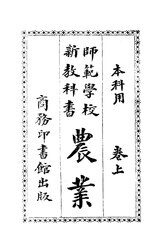 本科用 卷上
師範學校
新教科書
農業
商務印書館出版